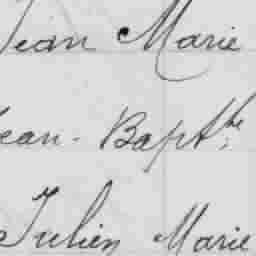 Jean Marie
Jean-Bapt.the
Julien Marie